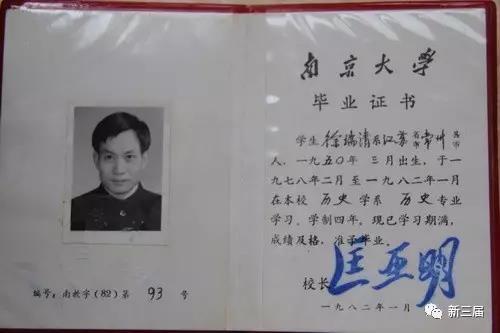 南京大学
毕业证书
学生徐瑞清系江苏省市常州县市
人，一九五〇年三月出生，于一
九七八年二月至一九八二年一月
在本校历史学系历史专业
学习，学制四年，现已学习期满，
成绩及格，准予毕业。
校长匡亚明
一九八二年一月
编号：南教字(82)第93号
新三届